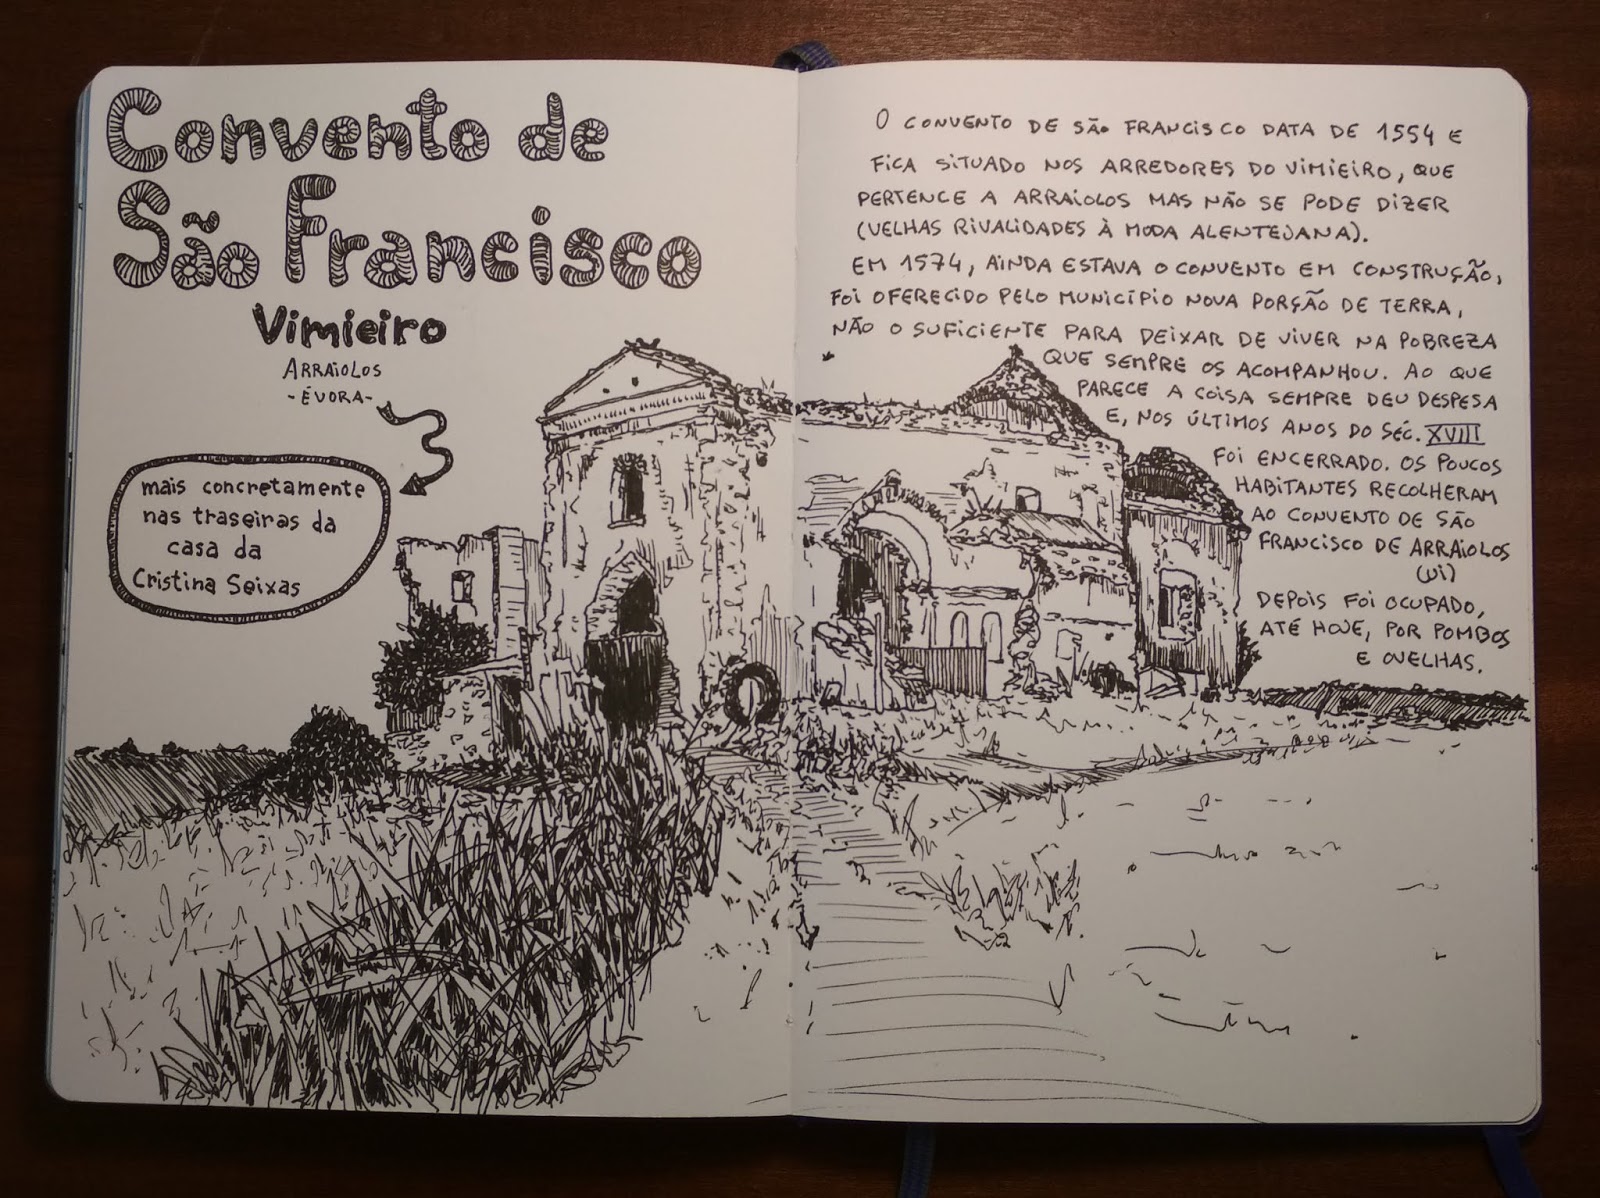 Convento de
São Francisco
Vimieiro
ARRAIOLOS
- ÉVORA -
mais concretamente
nas traseiras da
casa da
Cristina Seixas
O CONVENTO DE SÃO FRANCISCO DATA DE 1554 E
FICA SITUADO NOS ARREDORES DO VIMIEIRO, QUE
PERTENCE A ARRAIOLOS MAS NÃO SE PODE DIZER
(VELHAS RIVALIDADES À MODA ALENTEJANA).
EM 1574, AINDA ESTAVA O CONVENTO EM CONSTRUÇÃO,
FOI OFERECIDO PELO MUNICÍPIO NOVA PORÇÃO DE TERRA,
NÃO O SUFICIENTE PARA DEIXAR DE VIVER NA POBREZA
QUE SEMPRE OS ACOMPANHOU. AO QUE
PARECE A COISA SEMPRE DEU DESPESA
E, NOS ÚLTIMOS ANOS DO SÉC. XVIII
FOI ENCERRADO. OS POUCOS
HABITANTES RECOLHERAM
AO CONVENTO DE SÃO
FRANCISCO DE ARRAIOLOS
(UI)
DEPOIS FOI OCUPADO,
ATÉ HOJE, POR POMBOS
E OVELHAS.